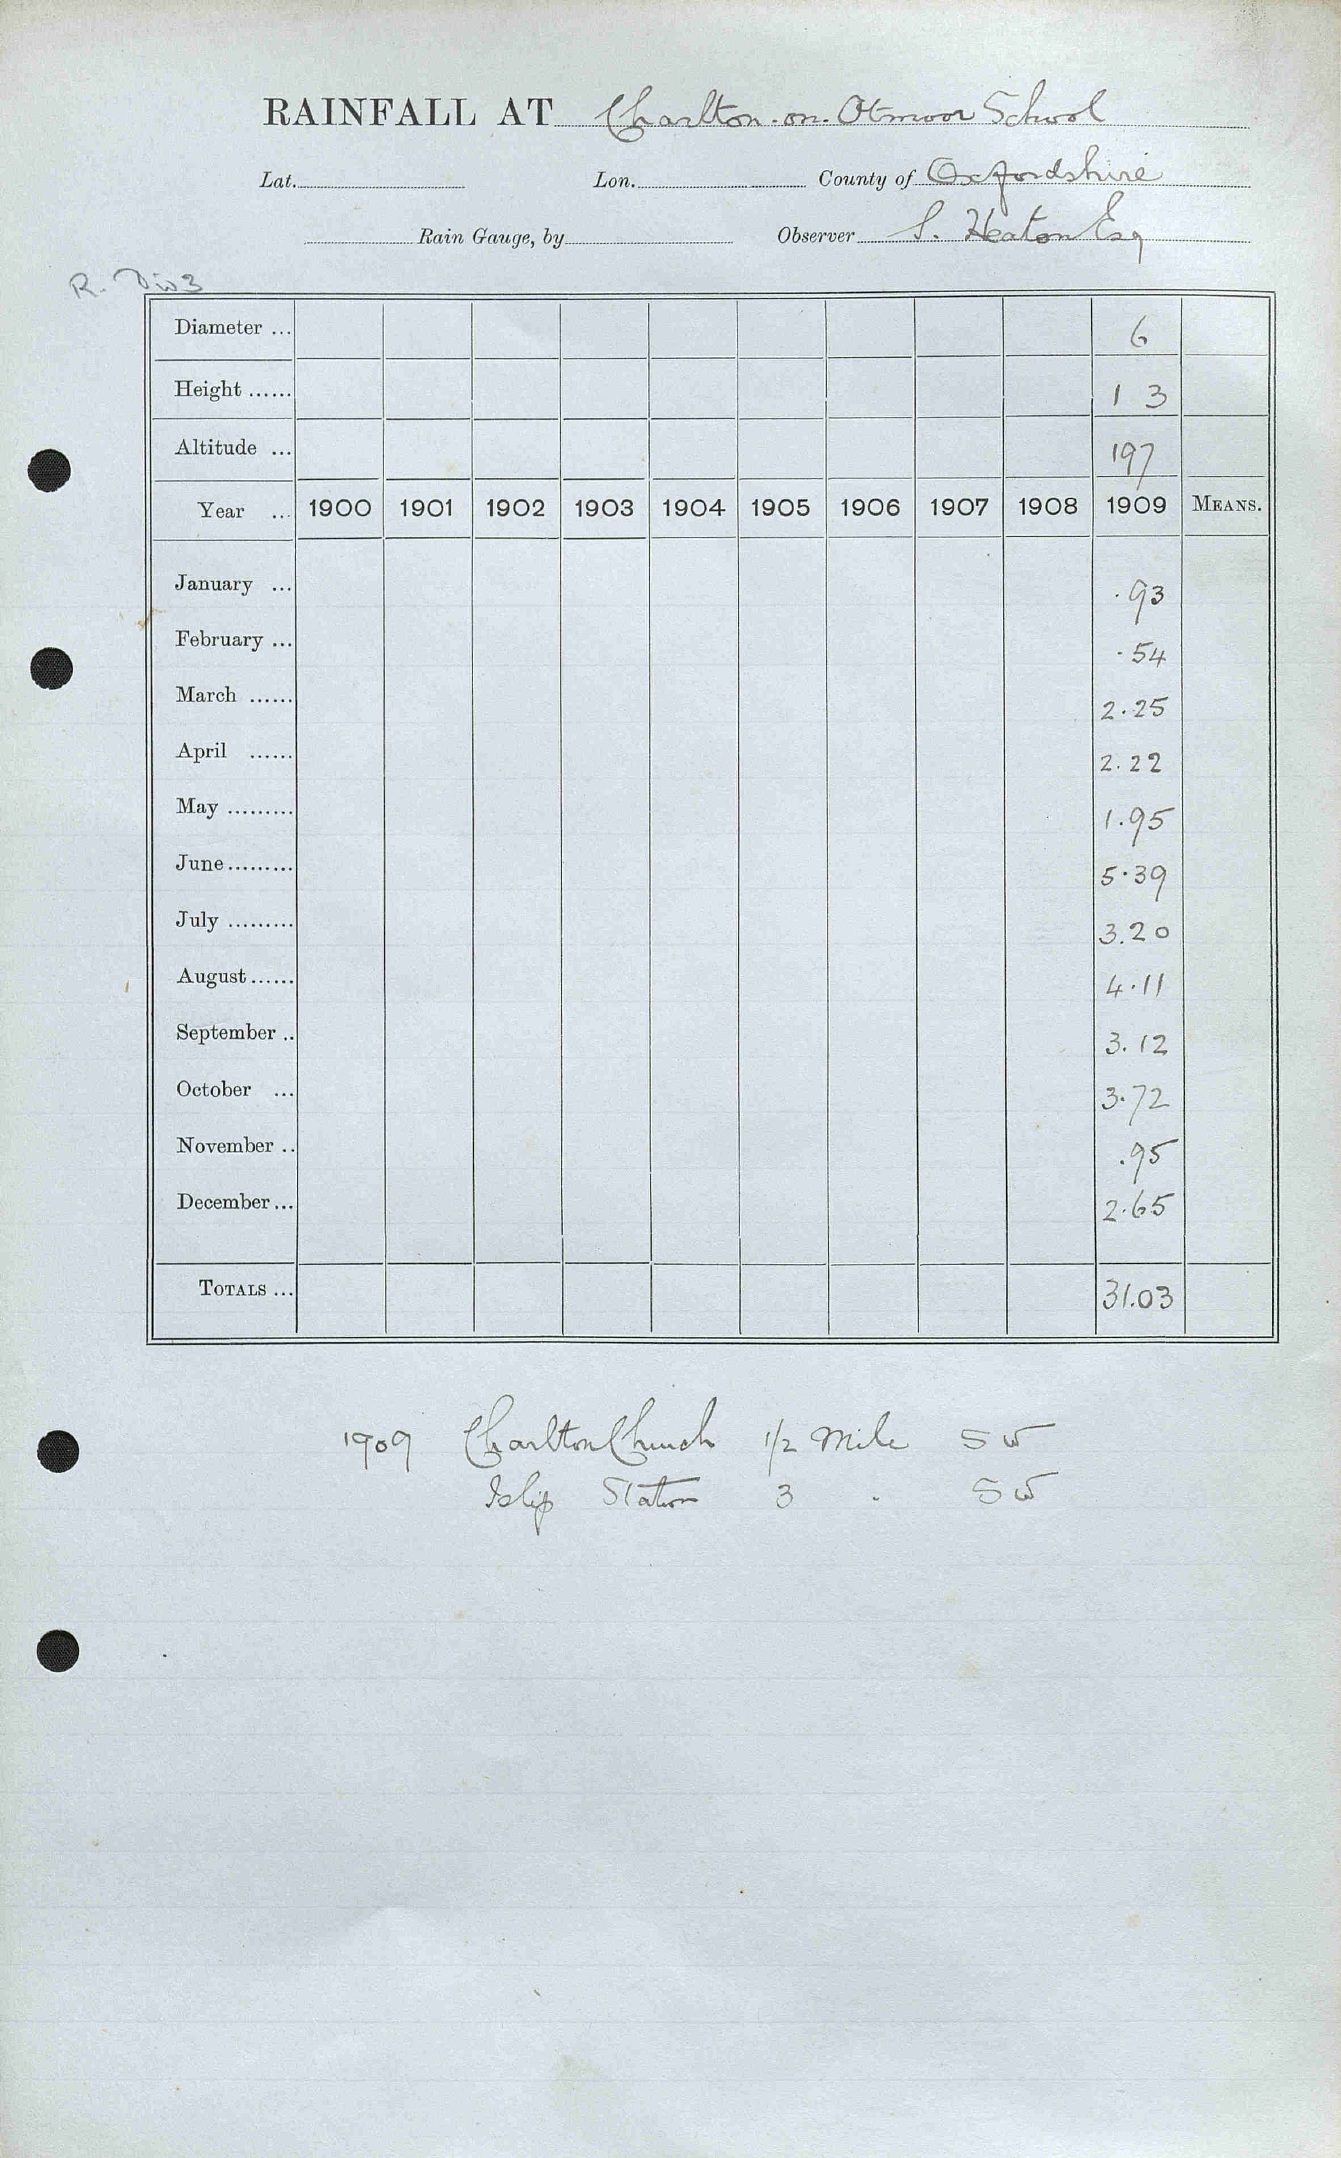 RAINFALL AT Charlton-on-Otmoor School
Lat. Lon. County of Oxfordshire
Rain Gauge, by Observer S. Heaton Esq
R. Div 3
Diameter ... 6
Height ...... 1 3
Altitude ... 197
Year ... 1900 1901 1902 1903 1904 1905 1906 1907 1908 1909 MEANS.
January ... .93
February ... .54
March ...... 2.25
April ...... 2.22
May ......... 1.95
June ......... 5.39
July ......... 3.20
August ...... 4.11
September .. 3.12
October ... 3.72
November .. .95
December ... 2.65
TOTALS ... 31.03
1909 Charlton Church 1/2 Mile SW
Islip Station 3 . SW